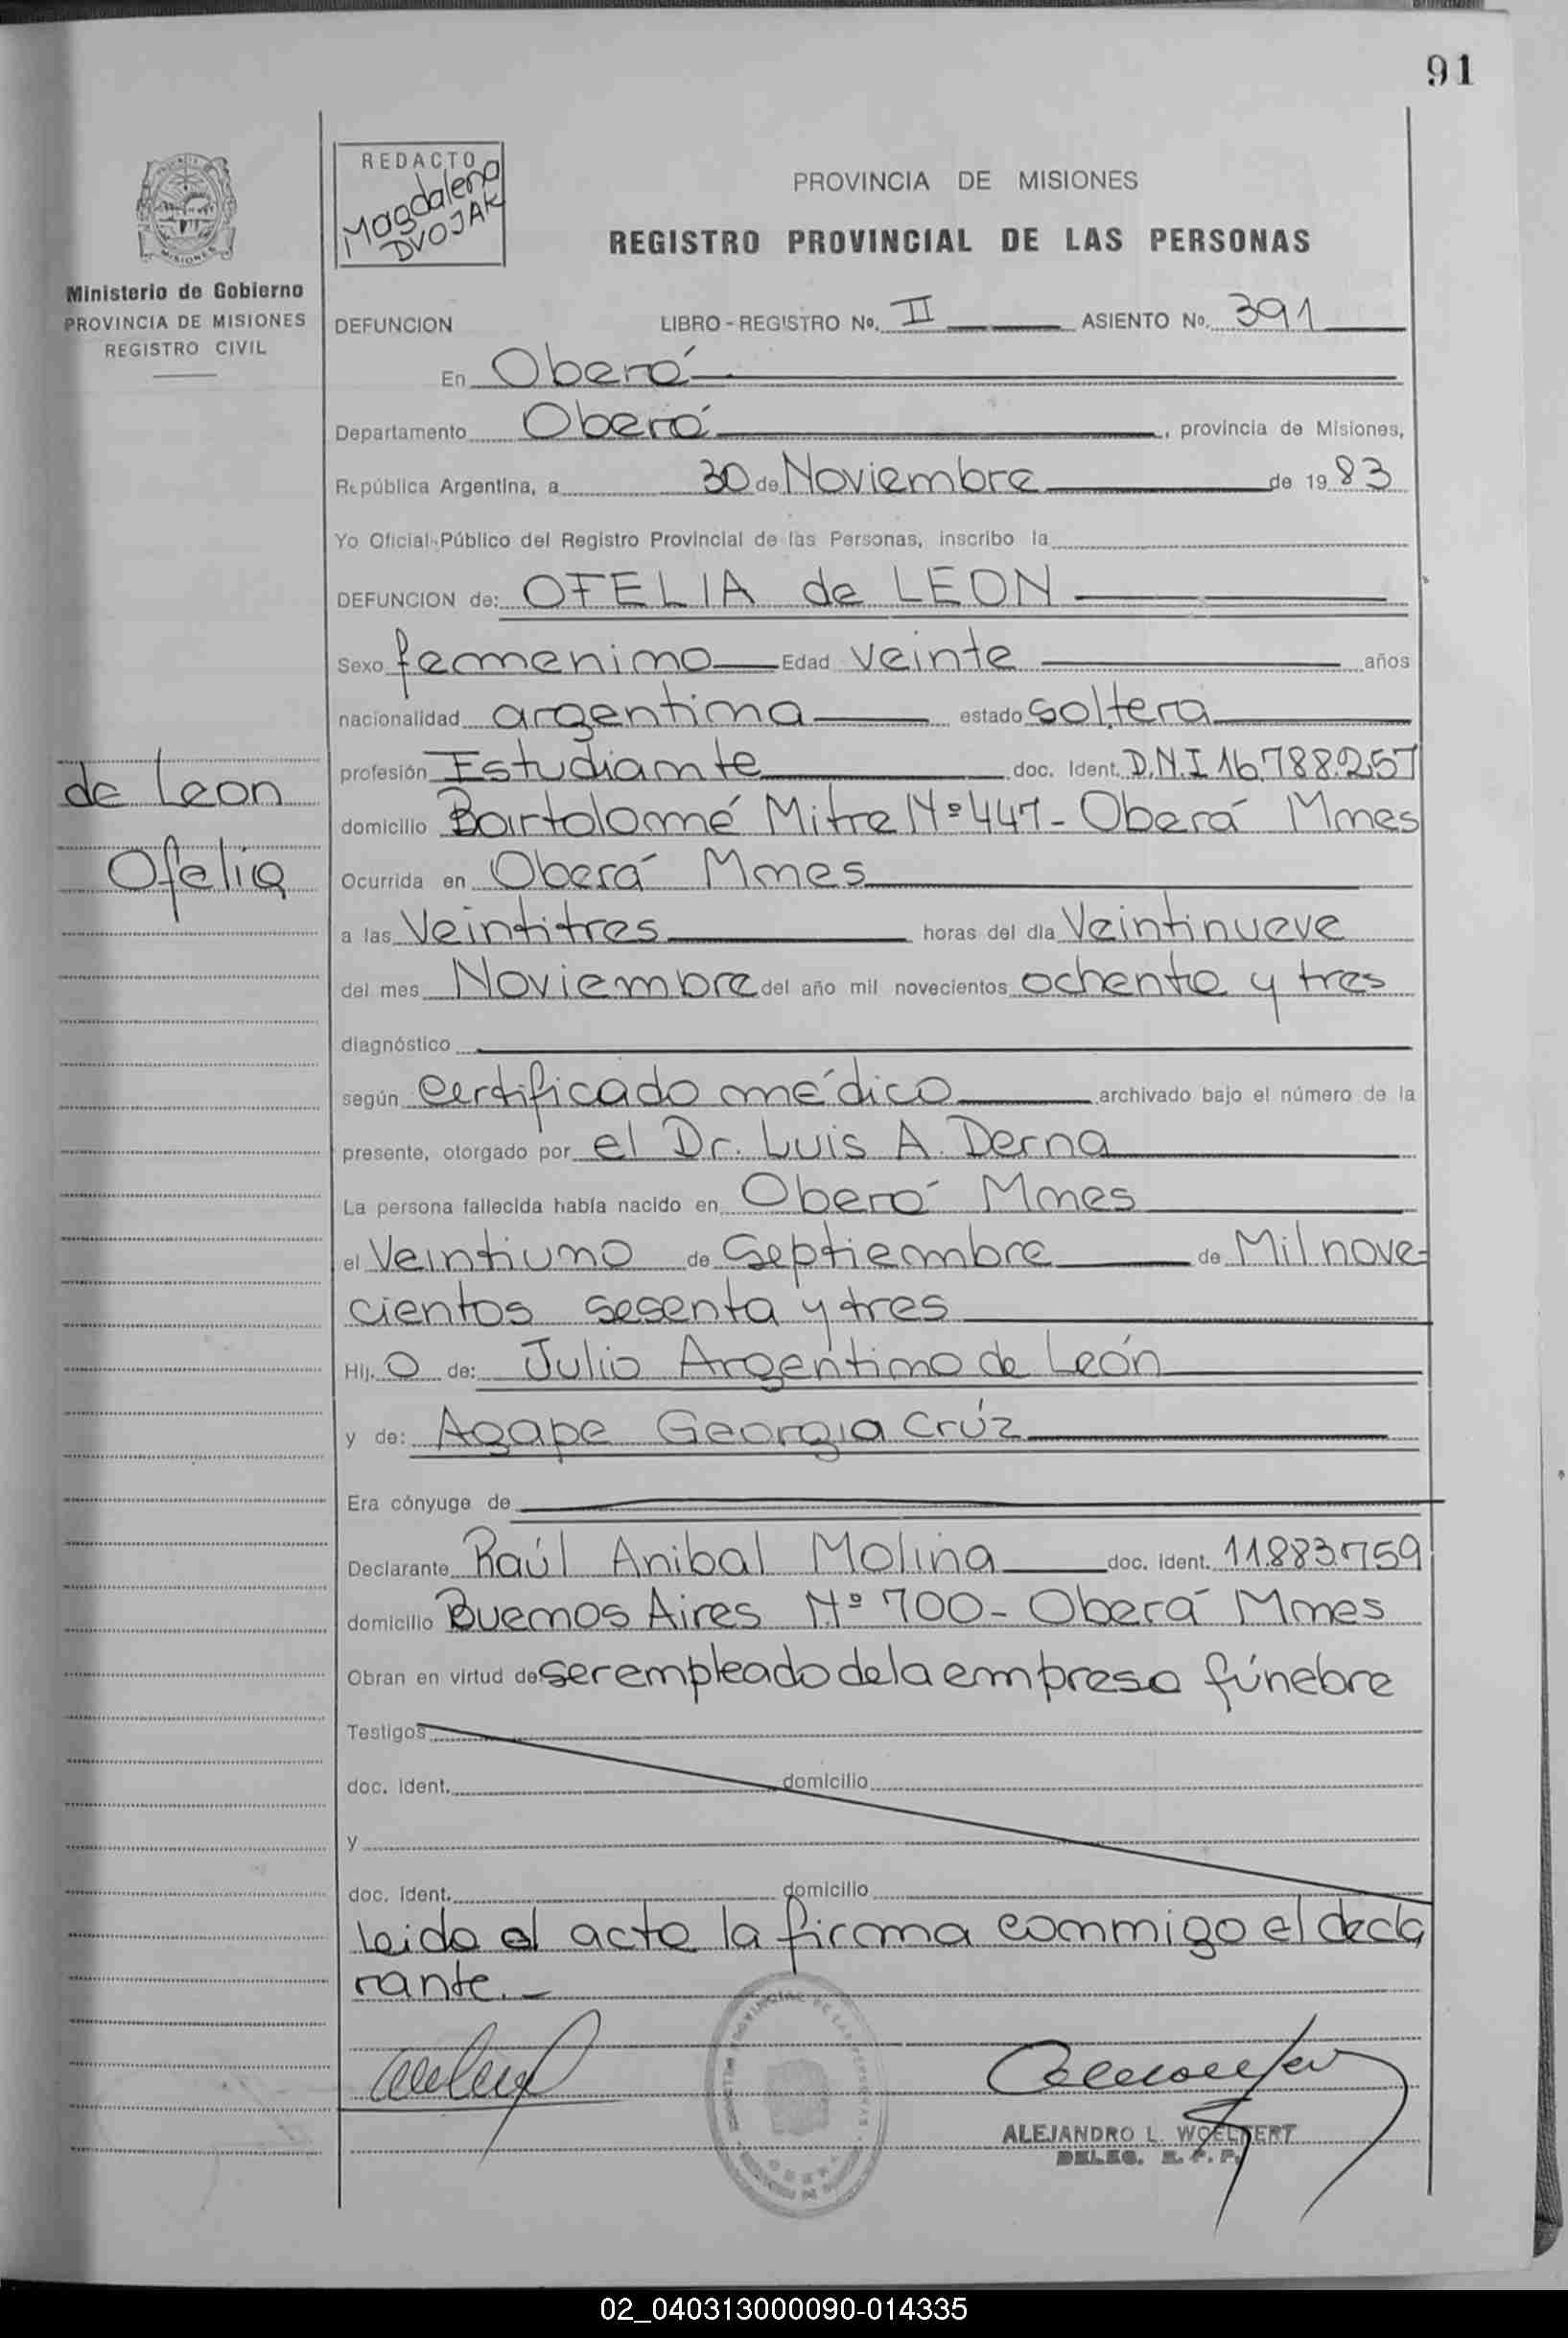 91
REDACTO
Magdalena
DVOJAK
PROVINCIA DE MISIONES
REGISTRO PROVINCIAL DE LAS PERSONAS
MISIONES
Ministerio de Gobierno
PROVINCIA DE MISIONES
REGISTRO CIVIL
DEFUNCION LIBRO-REGISTRO No. II ASIENTO No. 391
En Oberá
Departamento Oberá, provincia de Misiones,
República Argentina, a 30 de Noviembre de 1983
Yo Oficial Público del Registro Provincial de las Personas, inscribo la
DEFUNCION de: OFELIA de LEON
Sexo femenino Edad veinte años
nacionalidad argentina estado soltera
profesión Estudiante doc. Ident. D.N.I 16.788.257
de Leon
Ofelia
domicilio Bartolomé Mitre Nº 447 - Oberá Mnes
Ocurrida en Oberá Mnes
a las Veintitres horas del día Veintinueve
del mes Noviembre del año mil novecientos ochenta y tres
diagnóstico
según certificado médico archivado bajo el número de la
presente, otorgado por el Dr. Luis A. Derna
La persona fallecida había nacido en Oberá Mnes
el Veintiuno de Septiembre de Mil nove-
cientos sesenta y tres
Hij. o de: Julio Argentino de León
y de: Agape Georgia Crúz
Era cónyuge de
Declarante Raúl Anibal Molina doc. ident. 11.883.759
domicilio Buenos Aires Nº 700 - Oberá Mnes
Obran en virtud de ser empleado de la empresa fúnebre
Testigos
doc. ident. domicilio
y
doc. ident. domicilio
Leida el acta la firma conmigo el decla
rante.-
ALEJANDRO L. WOELFERT
DELEG. R. P. P.
02_040313000090-014335